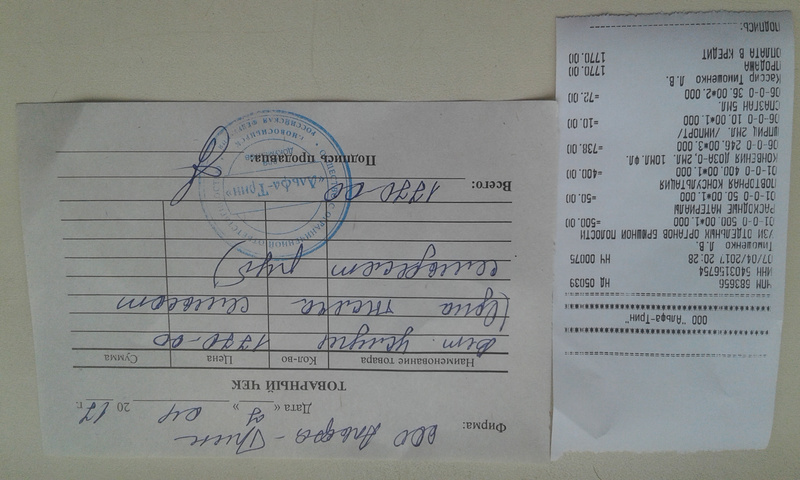 Фирма: ООО Альфа-Трин
Дата « 7 » 04 20 17 г.
ТОВАРНЫЙ ЧЕК
Наименование товара Кол-во Цена Сумма
Вет. услуги 1770-00
(Одна тысяча семьсот
семьдесят руб)
Всего: 1770-00
Подпись продавца:
ОБЩЕСТВО С ОГРАНИЧЕННОЙ ОТВЕТСТВЕННОСТЬЮ
РОССИЙСКАЯ ФЕДЕРАЦИЯ
г. НОВОСИБИРСК
«Альфа-Трин»
ДЛЯ ДОКУМЕНТОВ
ООО "Альфа-Трин"
ЧПМ 593656 НД 05039
ИНН 5403156754
07/04/2017 20:28 ЧН 00075
Тимошенко Л.В.
УЗИ ОТДЕЛЬНЫХ ОРГАНОВ БРЮШНОЙ ПОЛОСТИ
01-0-0 500.00*1.000 =500.00
РАСХОДНЫЕ МАТЕРИАЛЫ
01-0-0 50.00*1.000 =50.00
ПОВТОРНАЯ КОНСУЛЬТАЦИЯ
01-0-0 400.00*1.000 =400.00
КОНВЕНИЯ ДОЗА-0,2МЛ, 10МЛ.ФЛ.
06-0-0 246.00*3.000 =738.00
ШПРИЦ 2МЛ. /ИМПОРТ/
06-0-0 10.00*1.000 =10.00
СПАЗГАН 5МЛ.
06-0-0 36.00*2.000 =72.00
Кассир Тимошенко Л.В.
ПРОДАЖА 1770.00
ОПЛАТА В КРЕДИТ 1770.00
ПОДПИСЬ: